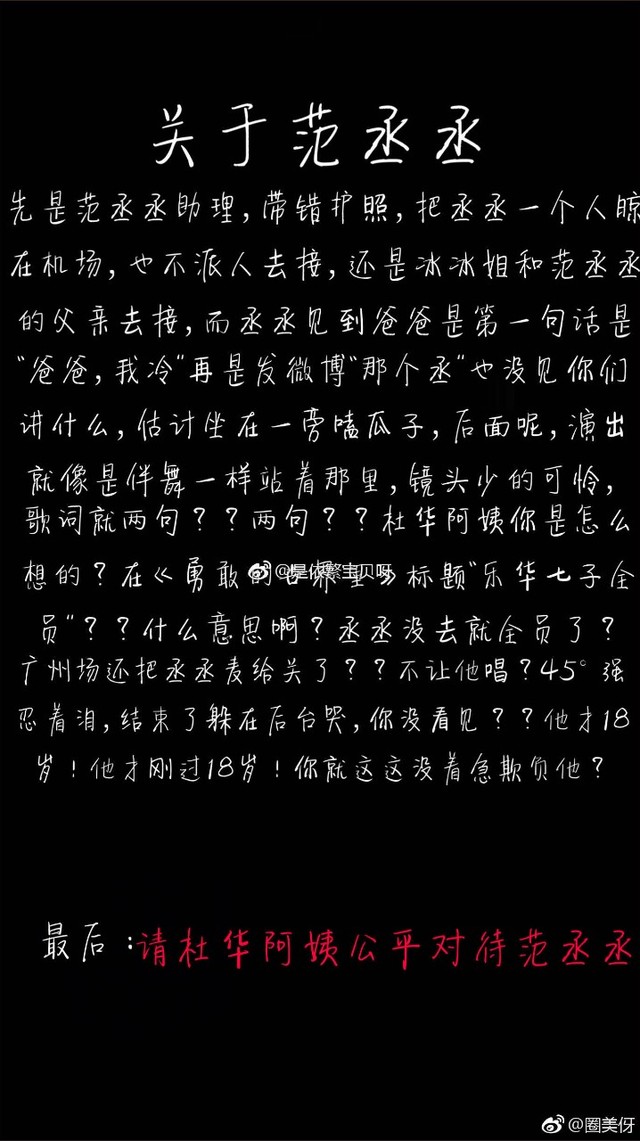 关于范丞丞
先是范丞丞助理,带错护照,把丞丞一个人晾
在机场,也不派人去接,还是冰冰姐和范丞丞
的父亲去接,而丞丞见到爸爸是第一句话是
“爸爸,我冷”再是发微博“那个丞”也没见你们
讲什么,估计坐在一旁嗑瓜子,后面呢,演出
就像是伴舞一样站着那里,镜头少的可怜,
歌词就两句???两句??杜华阿姨你是怎么
想的?在《勇敢的 》标题“乐华七子全
@是依繁宝贝呀
员”??什么意思啊?丞丞没去就全员了?
广州场还把丞丞麦给关了??不让他唱?45°强
忍着泪,结束了躲在后台哭,你没看见??他才18
岁!他才刚过18岁!你就这这没着急欺负他?
最后:请杜华阿姨公平对待范丞丞
@圈美伢